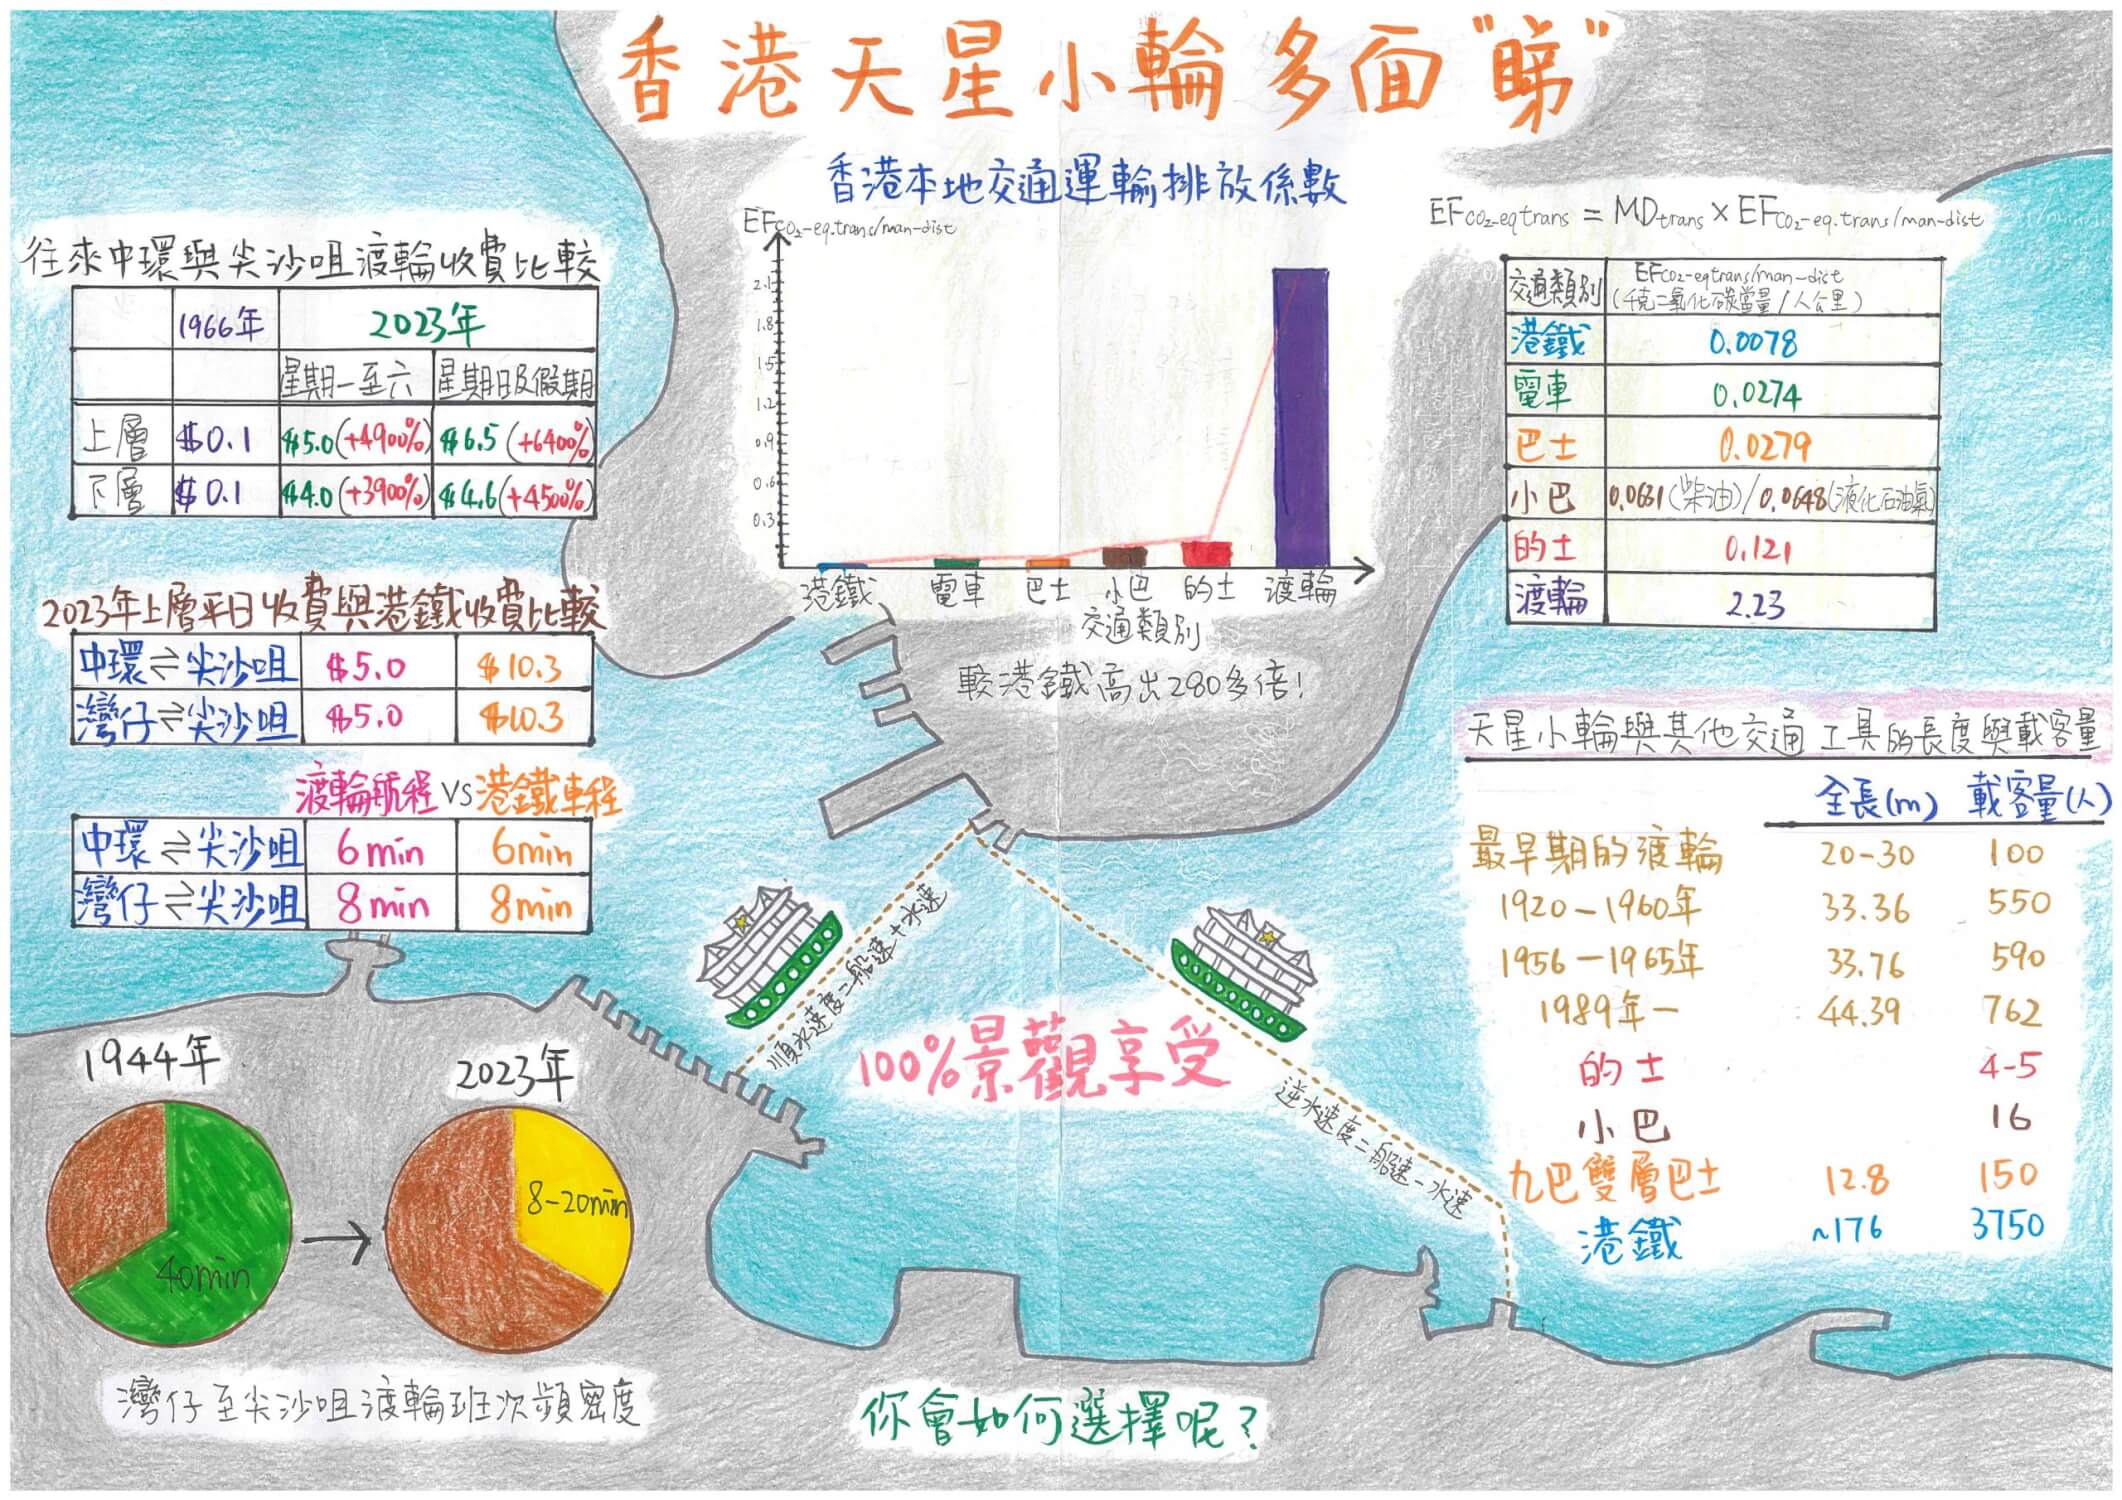 香港天星小輪多面"睇"
香港本地交通運輸排放係數
EFCO₂-eq.trans/man-dist
2.1
1.8
1.5
1.2
0.9
0.6
0.3
港鐵 電車 巴士 小巴 的士 渡輪
交通類別
較港鐵高出280多倍!
往來中環與尖沙咀渡輪收費比較
1966年 2023年
星期一至六 星期日及假期
上層 $0.1 $5.0(+4900%) $6.5(+6400%)
下層 $0.1 $4.0(+3900%) $4.6(+4500%)
2023年上層平日收費與港鐵收費比較
中環⇌尖沙咀 $5.0 $10.3
灣仔⇌尖沙咀 $5.0 $10.3
渡輪航程VS港鐵車程
中環⇌尖沙咀 6min 6min
灣仔⇌尖沙咀 8min 8min
1944年 2023年
40min
8-20min
灣仔至尖沙咀渡輪班次頻密度
順水速度=船速+水速
100%景觀享受
逆水速度=船速-水速
你會如何選擇呢?
EFCO₂-eqtrans = MDtrans × EFCO₂-eq.trans/man-dist
交通類別 EFCO₂-eqtrans/man-dist
(千克二氧化碳當量/人公里)
港鐵 0.0078
電車 0.0274
巴士 0.0279
小巴 0.0631(柴油)/0.0648(液化石油氣)
的士 0.121
渡輪 2.23
天星小輪與其他交通工具的長度與載客量
全長(m) 載客量(人)
最早期的渡輪 20-30 100
1920-1960年 33.36 550
1956-1965年 33.76 590
1989年- 44.39 762
的士 4-5
小巴 16
九巴雙層巴士 12.8 150
港鐵 ~176 3750